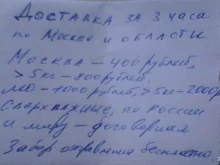 Доставка за 3 часа
по Москве и области
Москва – 400 рублей,
> 5кг – 800 рублей,
МО – 1000 рублей, > 5кг – 2000р
Сверхважные, по России
и миру – договорная
Забор отправления бесплатно